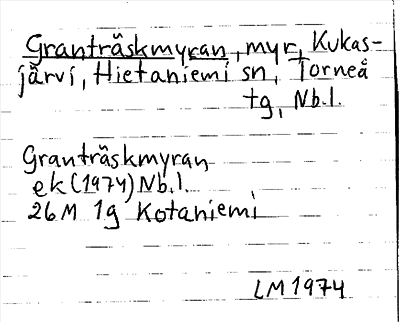 Granträskmyran, myr, Kukas-
järvi, Hietaniemi sn, Torneå
tg, Nb.l.
Granträskmyran
ek (1974) Nb.l.
26M 1g Kotaniemi
LM 1974